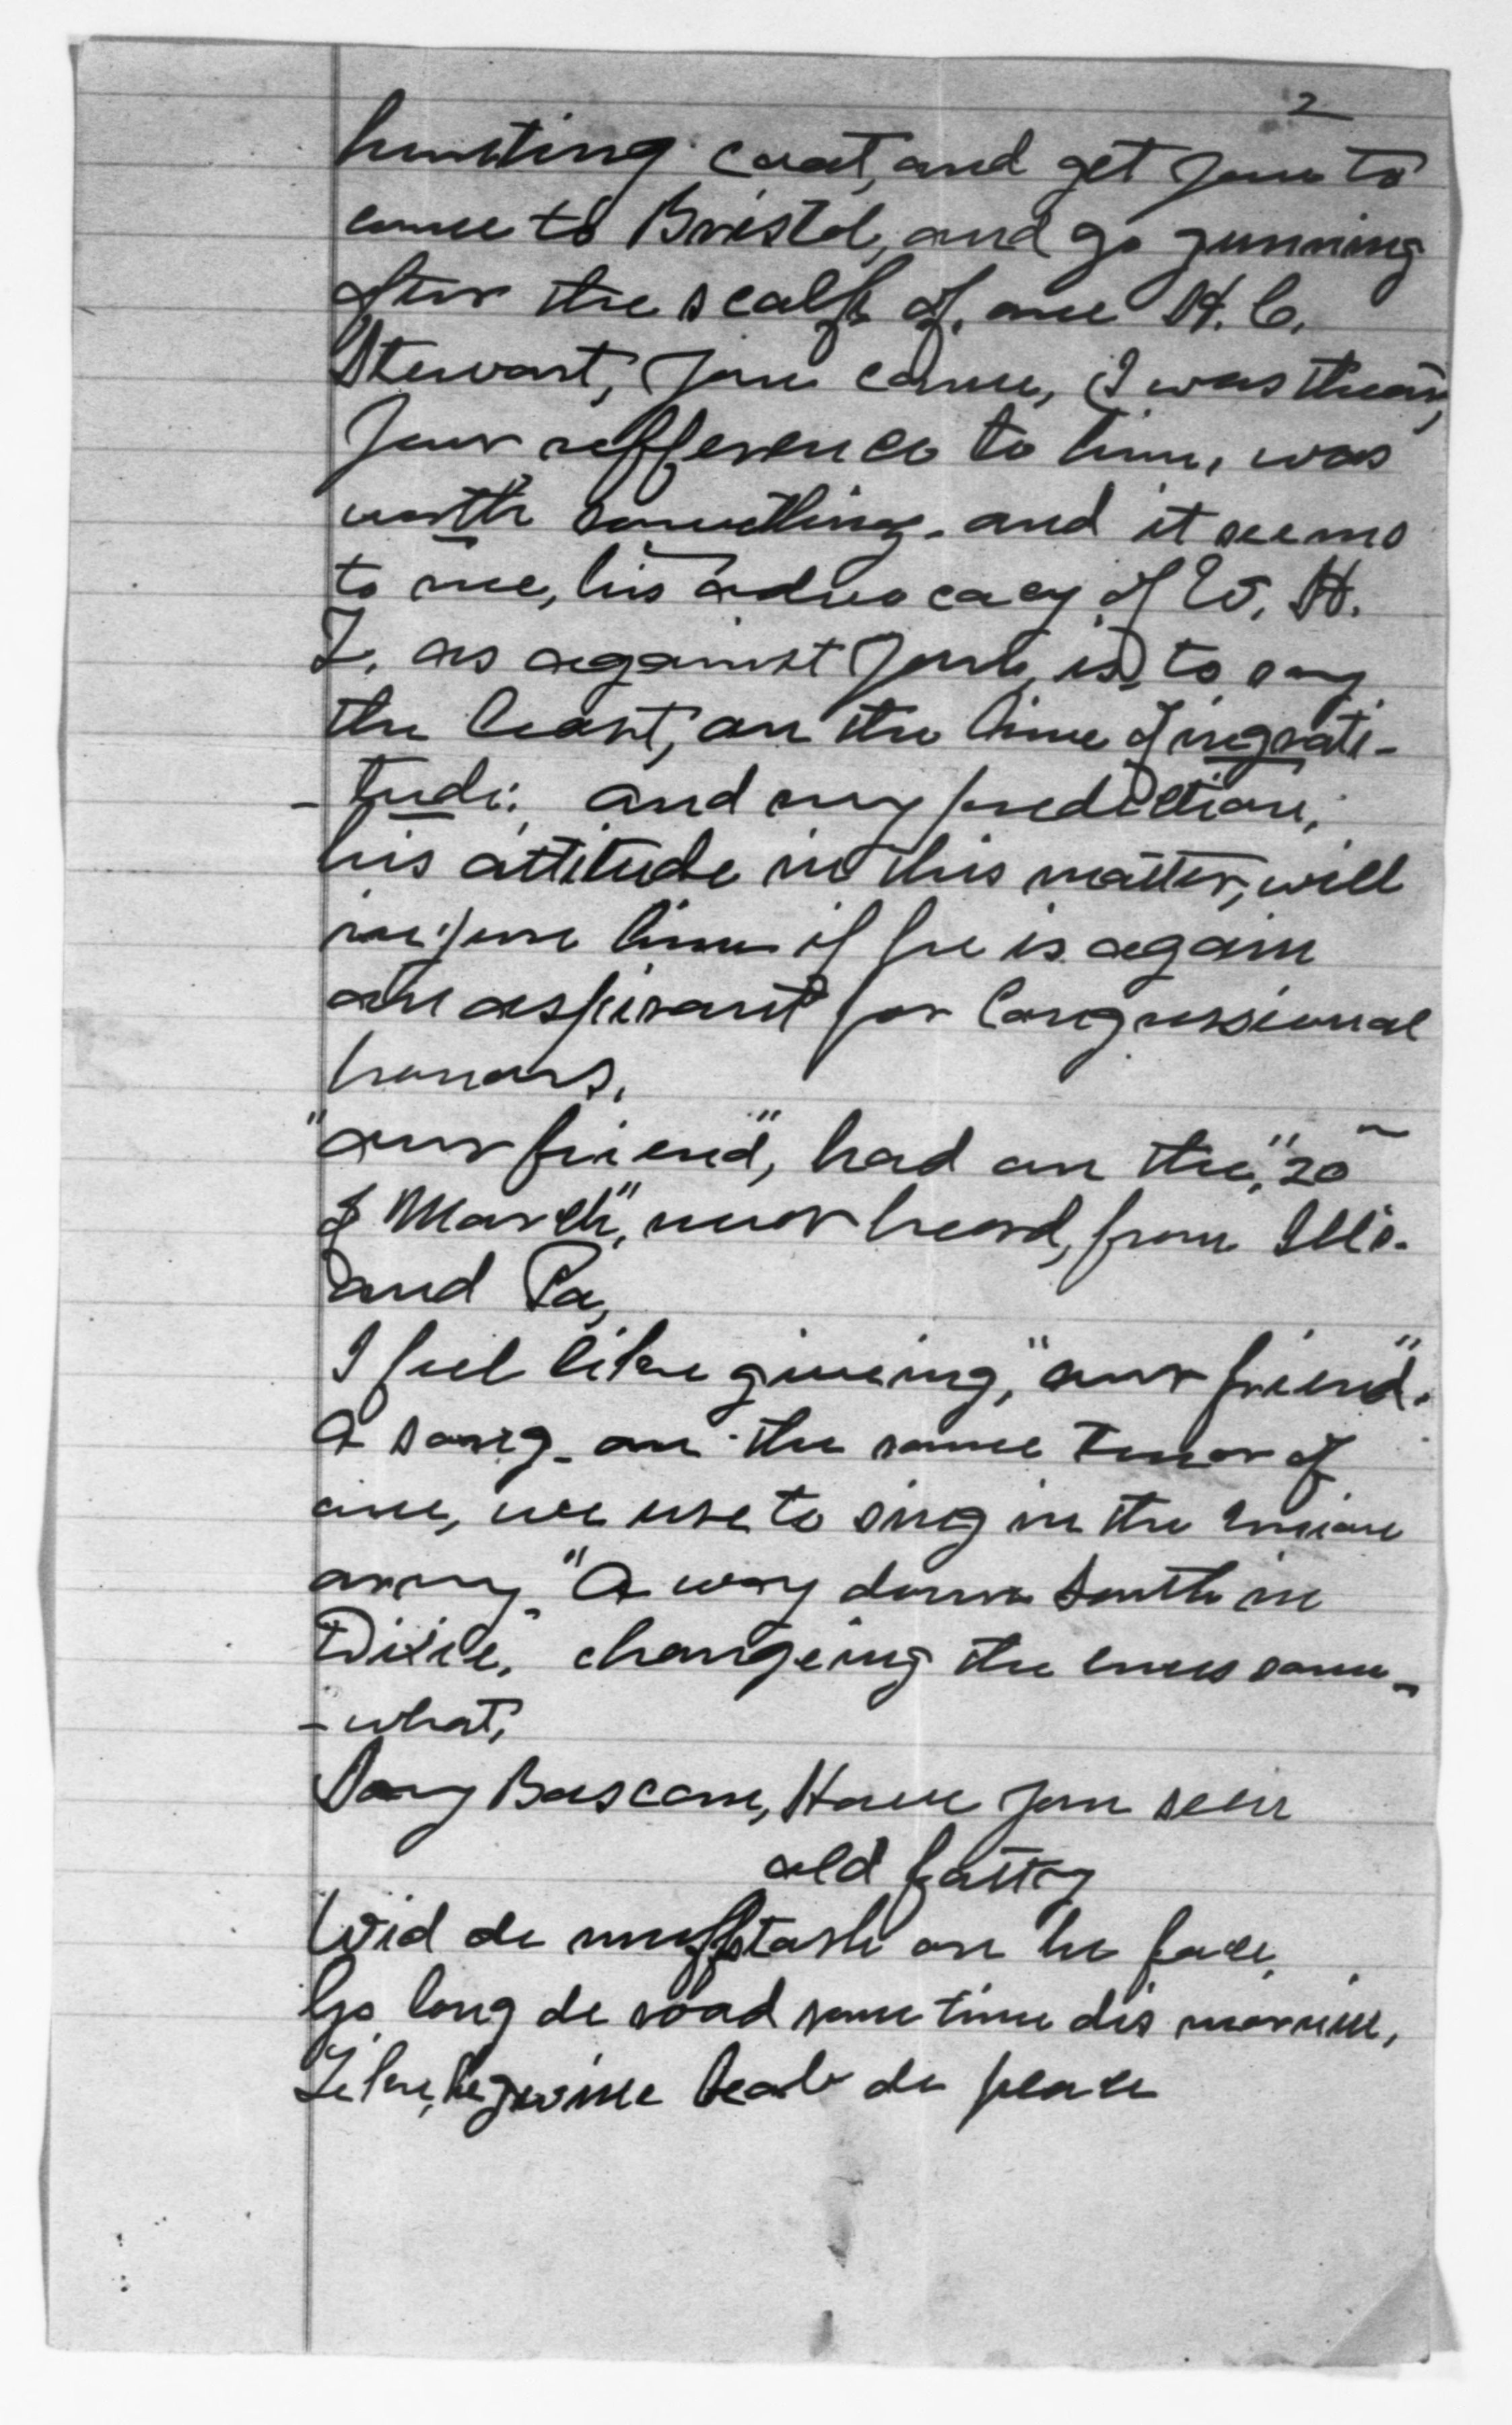 2
hunting coat, and get you to
come to Bristol, and go gunning
after the scalp of, one H. C.
Stewart, you came, I was thear,
your refference to him, was
worth something. and it seems
to me, his advocacy of W. H.
T. as against you, is, to say
the least, on the line of ingrati-
- tude: and my prediction,
his attitude in this matter, will
injure him if he is again
an aspirant for Congressional
honors.
"our friend", had on the, "20
of March", never heard, from Ills.
and Pa,
I feel like giveing, "our friend".
a song - on the same tenor of
one, we use to sing in the Union
army "A way down South in
Dixie," changeing the some-
- what,
Say Bascom, Have you seen
old fatty
Wid de muffstash on he face,
Go long de road some time dis mornin,
Like, he gwine leab de place